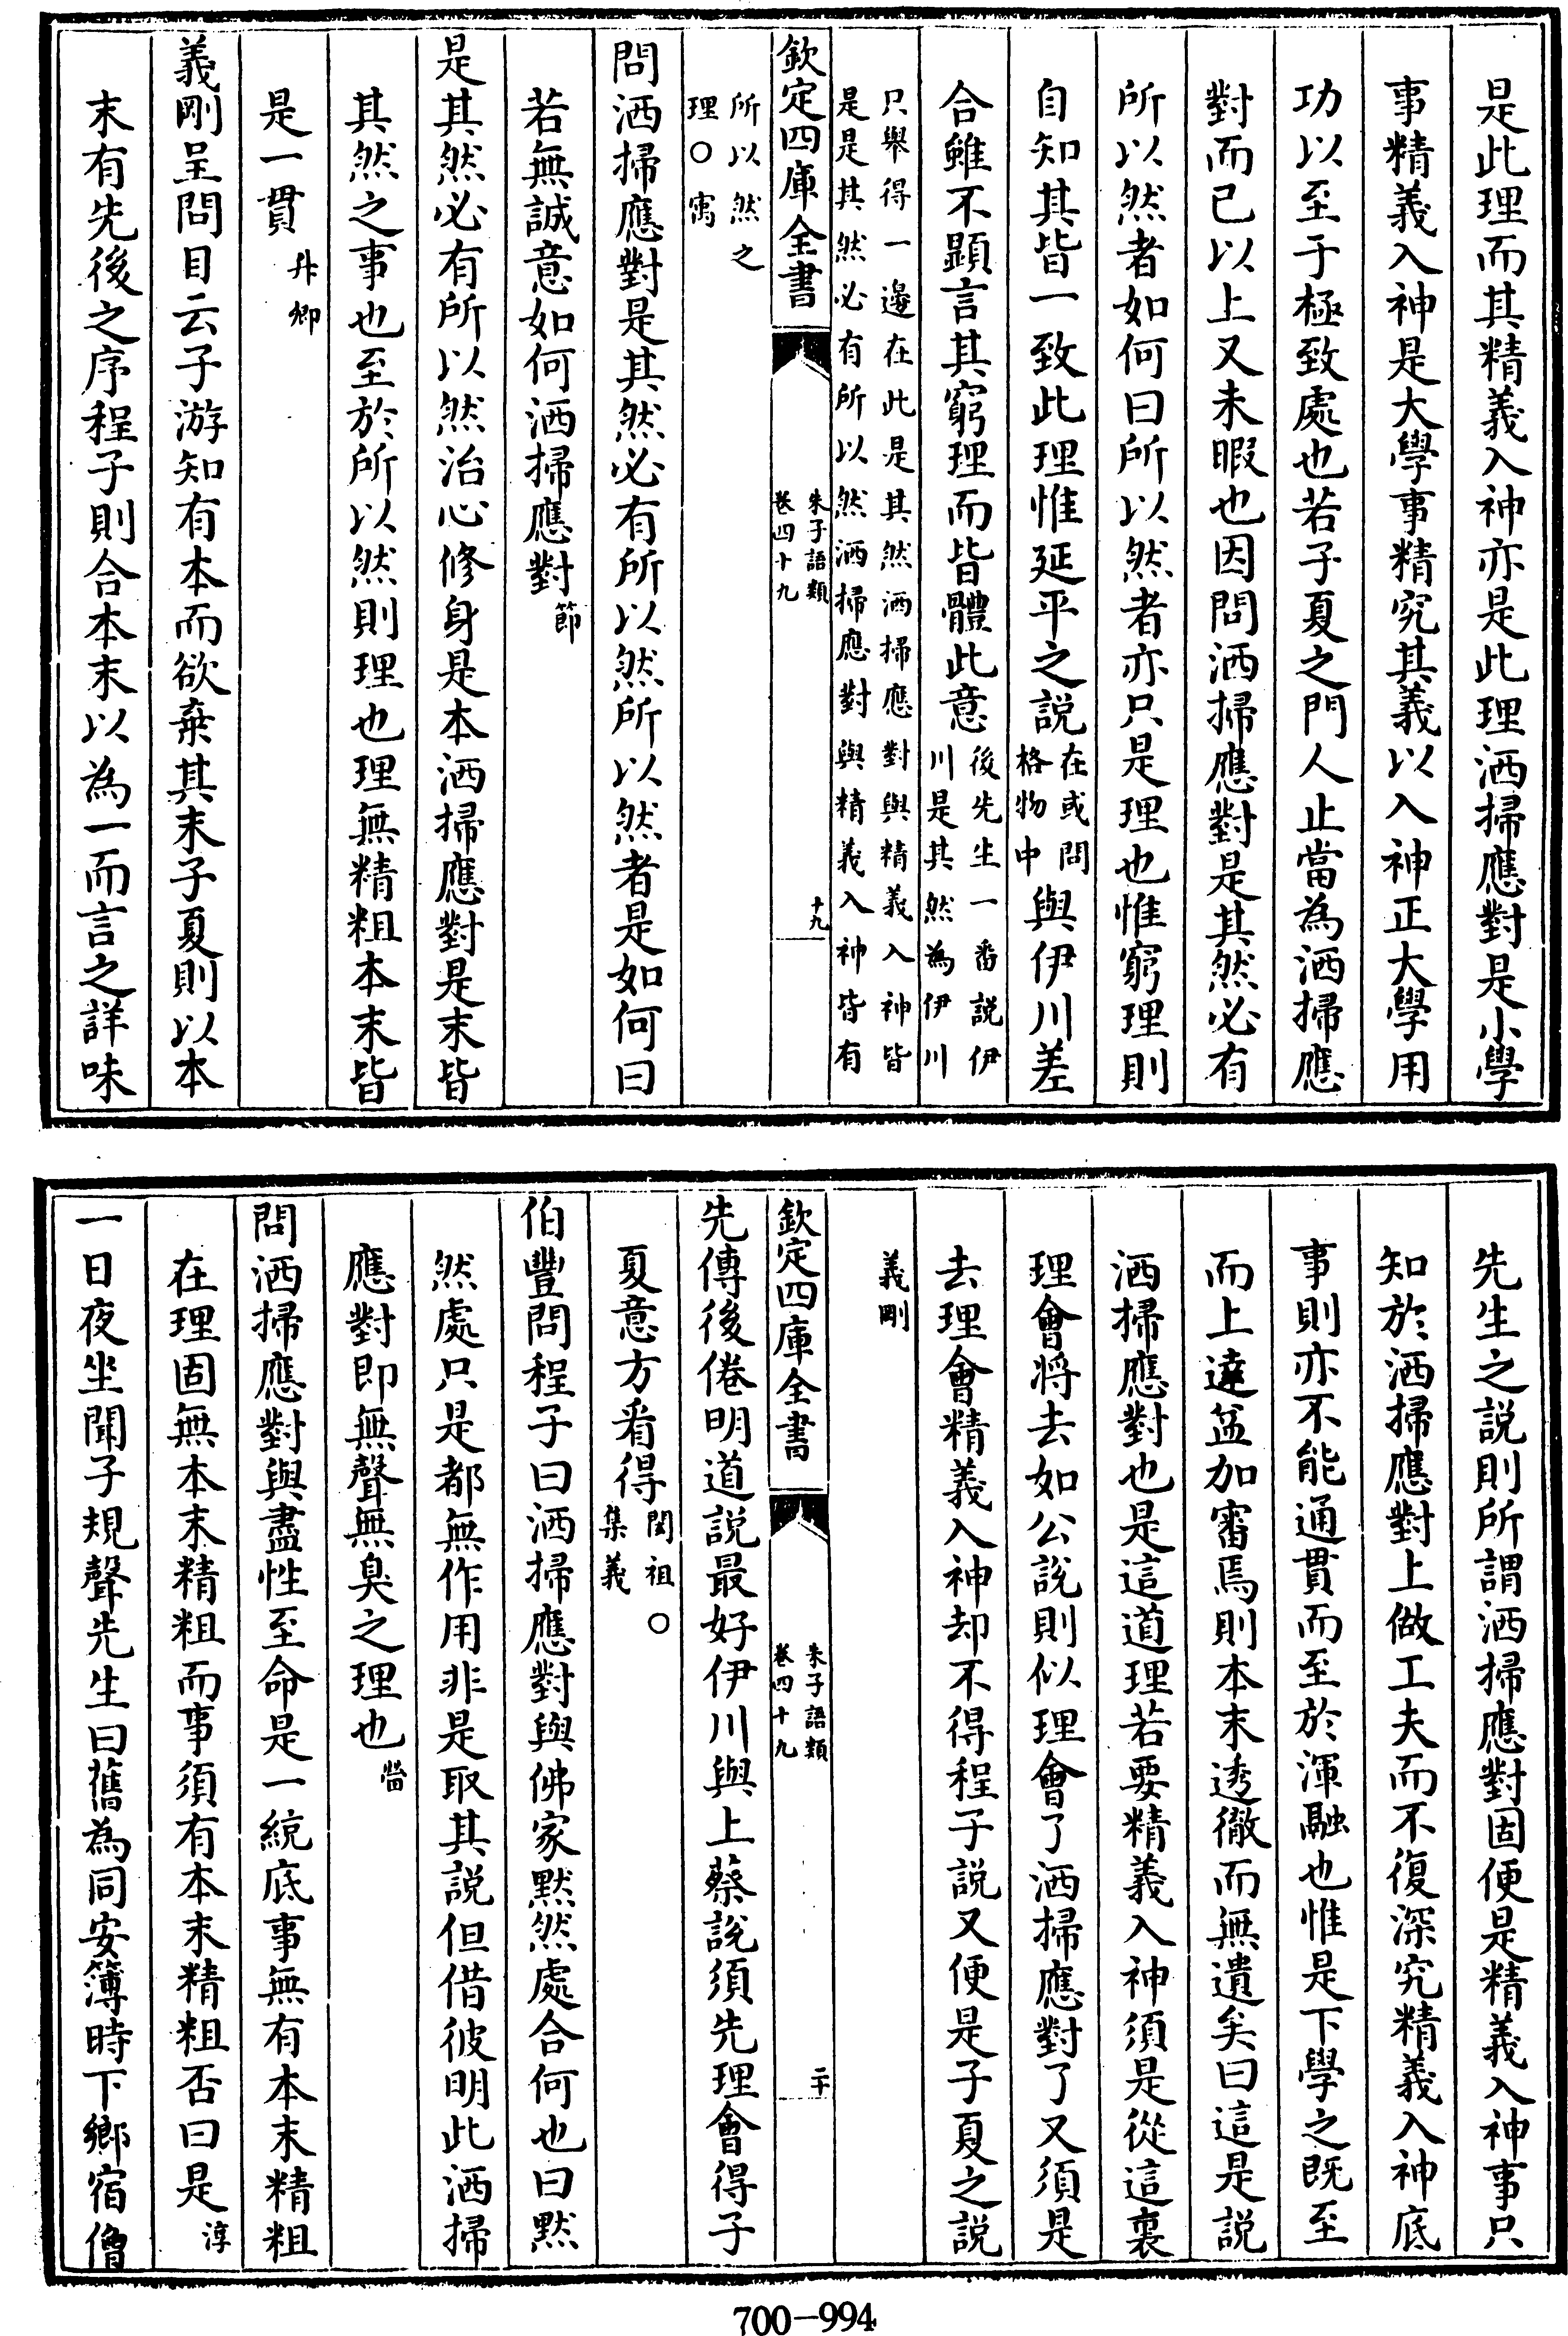 是此理而其精義入神亦是此理洒掃應對是小學
事精義入神是大學事精究其義以入神正大學用
功以至于極致處也若子夏之門人止當為洒掃應
對而已以上又未暇也因問洒掃應對是其然必有
所以然者如何曰所以然者亦只是理也惟窮理則
自知其皆一致此理惟延平之説在或問格物中與伊川差
合雖不顯言其窮理而皆體此意後先生一番説伊川是其然為伊川
只舉得一邊在此是其然洒掃應對與精義入神皆
是是其然必有所以然洒掃應對與精義入神皆有
欽定四庫全書
朱子語類
卷四十九
十九
所以然之
理○㝢
問洒掃應對是其然必有所以然所以然者是如何曰
若無誠意如何洒掃應對節
是其然必有所以然治心修身是本洒掃應對是末皆
其然之事也至於所以然則理也理無精粗本末皆
是一貫升卿
義剛呈問目云子游知有本而欲棄其末子夏則以本
末有先後之序程子則合本末以為一而言之詳味
先生之説則所謂洒掃應對固便是精義入神事只
知於洒掃應對上做工夫而不復深究精義入神底
事則亦不能通貫而至於渾融也惟是下學之既至
而上達益加審焉則本末透徹而無遺矣曰這是説
洒掃應對也是這道理若要精義入神須是從這裏
理會將去如公説則似理會了洒掃應對了又須是
去理會精義入神却不得程子説又便是子夏之説
義剛
欽定四庫全書
朱子語類
卷四十九
二十
先傳後倦明道説最好伊川與上蔡説須先理會得子
夏意方看得閎祖○集義
伯豐問程子曰洒掃應對與佛家黙然處合何也曰黙
然處只是都無作用非是取其説但借彼明此洒掃
應對即無聲無臭之理也㽦
問洒掃應對與盡性至命是一統底事無有本末精粗
在理固無本末精粗而事須有本末精粗否曰是淳
一日夜坐聞子規聲先生曰舊為同安簿時下鄉宿僧
700-994